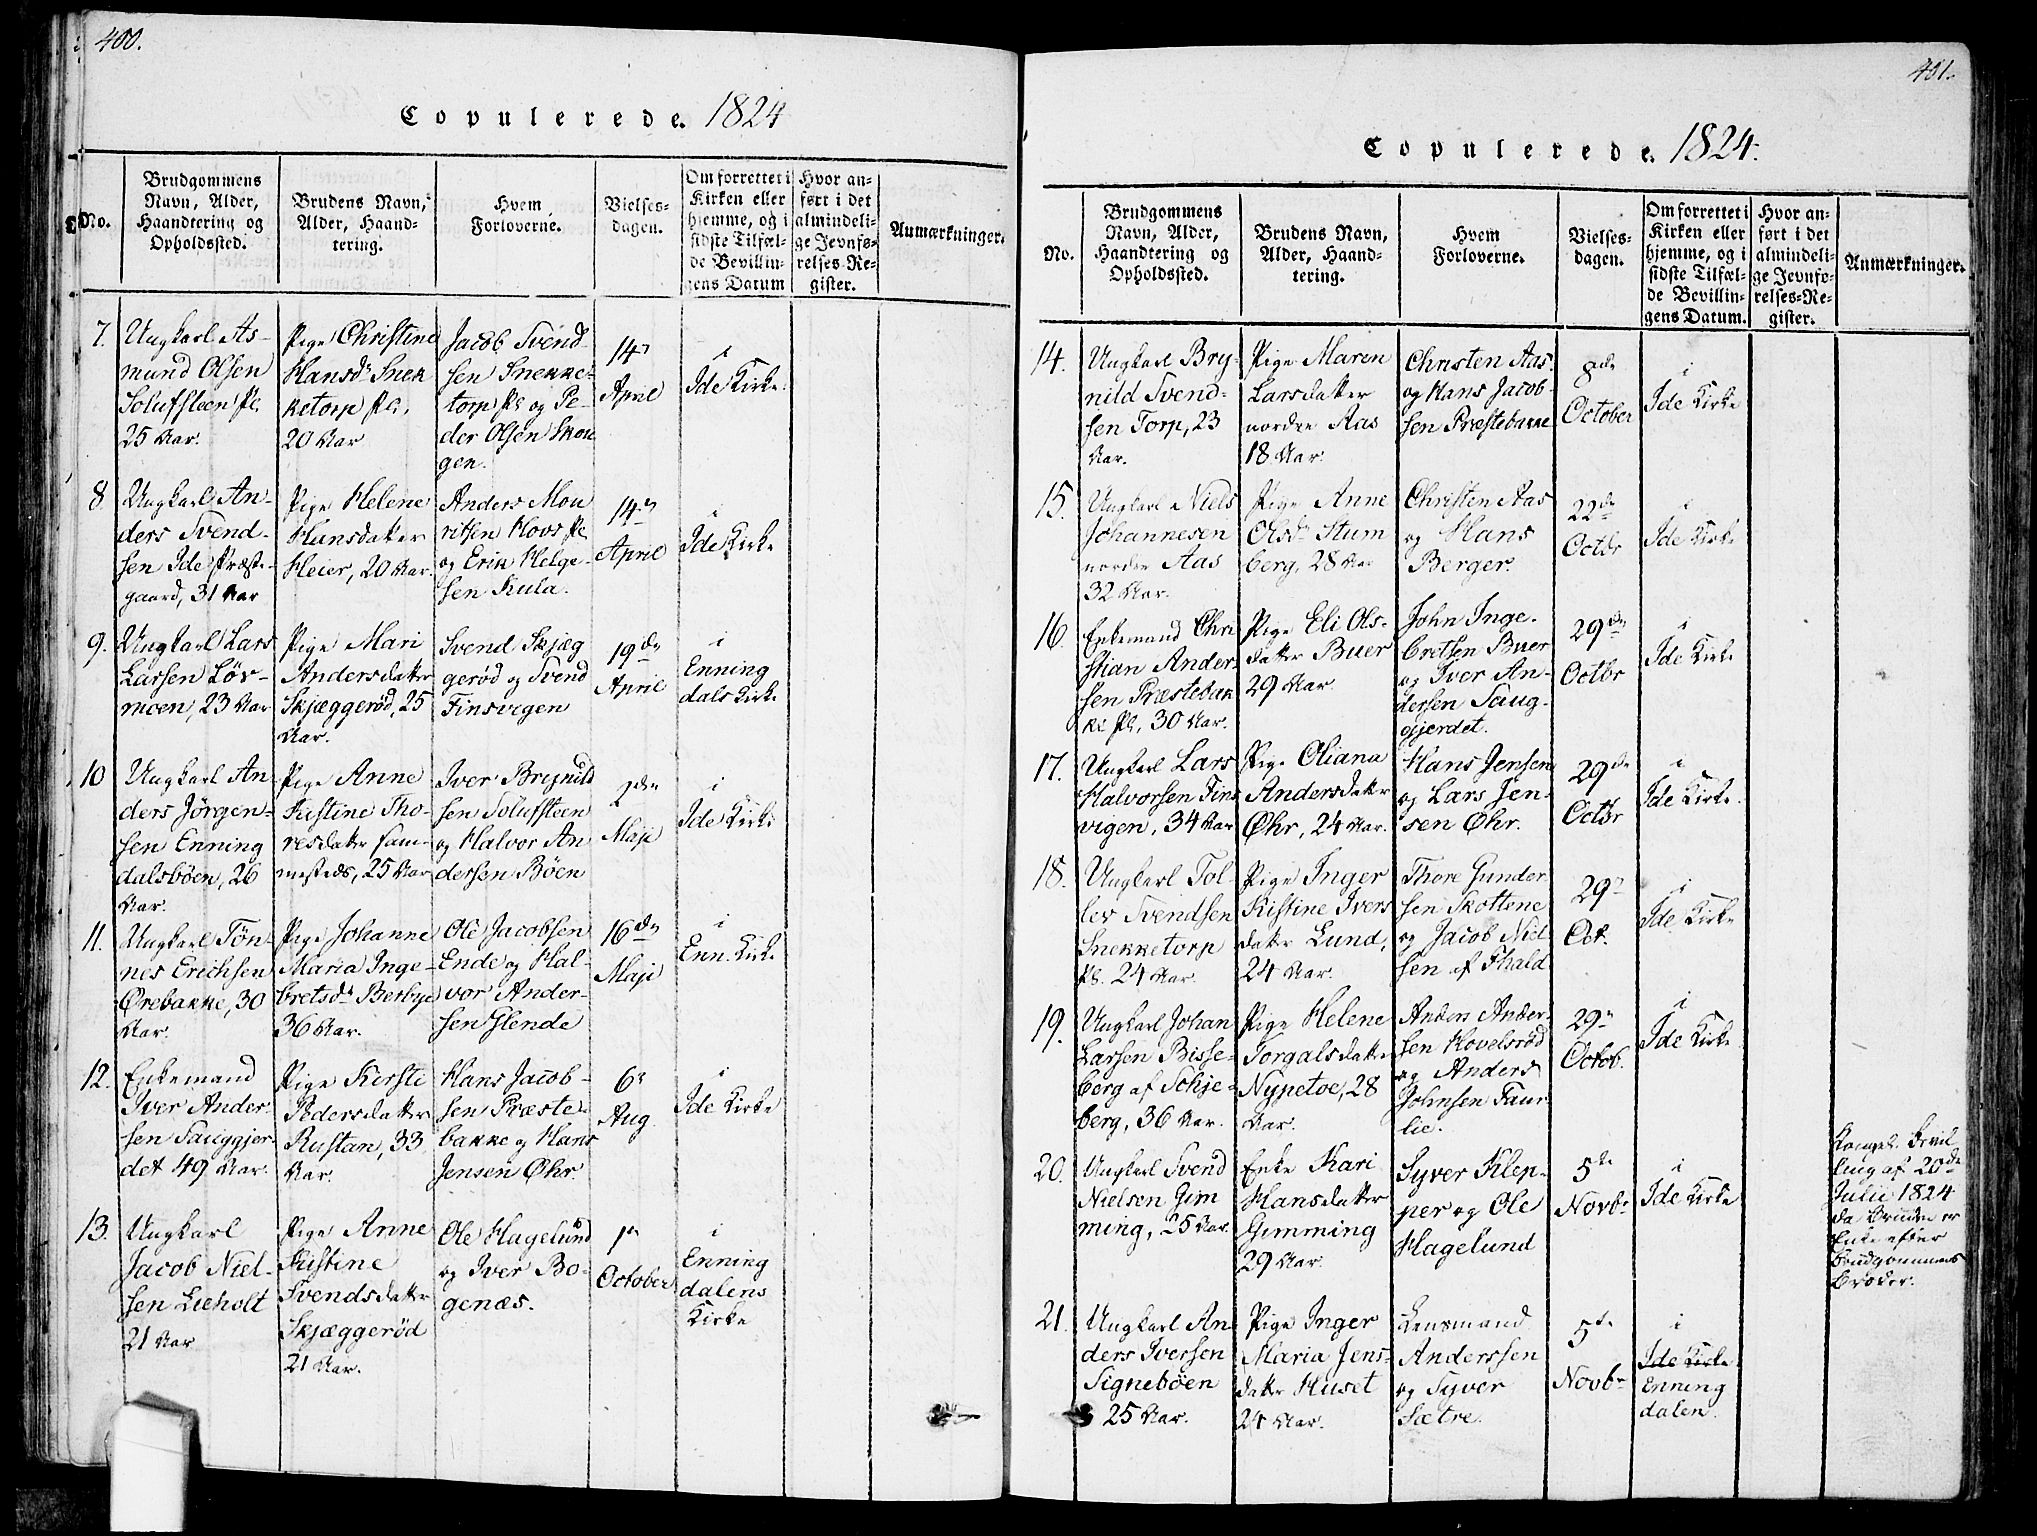 400.
Copulerede. 1824
No.
Brudgommens
Navn, Alder,
Haandtering og
Opholdssted.
Brudens Navn,
Alder, Haand-
tering.
Hvem
Forloverne.
Vielses-
dagen.
Om forrettet i
Kirken eller
hjemme, og i
sidste Tilfæl-
de Bevillin-
gens Datum
Hvor an-
ført i det
almindeli-
ge Jevnfø-
relses-Re-
gister.
Anmærkninger.
7.
Ungkarl As-
mund Olsen
Solufsteen Pl.
25 Aar.
Pige Christine
Hansdr Snek
ketorp Pl.,
20 Aar
Jacob Svend
sen Snekke-
torp Pl og Pe-
der Olsen Skou
gen.
14n
April
i
Ide Kirke.
8
Ungkarl An-
ders Svend-
sen Ide Præste-
gaard, 31 Aar
Pige Helene
Hansdatter
Heier, 20 Aar.
Anders Mou
ritsen Hovs Pl
og Erik Helge-
sen Kula.
14n
April
i
Ide Kirke
9.
Ungkarl Lars
Larsen Löv-
moen, 23 Aar
Pige Mari
Andersdatter
Skjæggeröd, 25
Aar.
Svend Skjæg
geröd og Svend
Finsvigen
19de
April
i
Enning
dals Kirke
10
Ungkarl An-
ders Jörgen-
sen Enning
dalsböen, 26
Aar.
Pige Anne
Kistine Tho-
resdatter sam-
mesteds, 25 Aar
Iver Brynild
sen Solufsteen
og Halvor An
dersen Böen
2den
Maji
i
Ide Kirke
11.
Ungkarl Tön-
nes Erichsen
Örebakke, 30
Aar.
Pige Johanne
Maria Inge-
bretsdr Berbye
36 Aar.
Ole Jacobsen
Ende og Hal-
vor Ander-
sen Hende
16de
Maji
i
Enn. Kirke
12.
Enkemand
Iver Ander-
sen Sauggjer-
det 49 Aar.
Pige Kirsti
Pedersdatter
Rustan, 33
Aar.
Hans Jacob-
sen Præste-
bakke og Hans
Jensen Öhr.
6e
Aug.
i
Ide Kirke
13.
Ungkarl
Jacob Niel-
sen Lieholt
21 Aar
Pige Anne
Kistine
Svendsdatter
Skjæggeröd
21 Aar.
Ole Hagelund
og Iver Bo-
genæs.
1e
October
i
Enning
dalens
Kirke
401.
Copulerede. 1824.
No.
Brudgommens
Navn, Alder,
Haandtering og
Opholdssted.
Brudens Navn,
Alder, Haand-
tering.
Hvem
Forloverne.
Vielses-
dagen.
Om forrettet i
Kirken eller
hjemme, og i
sidste Tilfæl-
de Bevillin-
gens Datum.
Hvor an-
ført i det
almindeli-
ge Jevnfø-
relses-Re-
gister.
Anmærkninger.
14.
Ungkarl Bry-
nild Svend-
sen Torp, 23
Aar.
Pige Maren
Larsdatter
nordre Aas
18 Aar.
Christen Aas
og Hans Jacob-
sen Præstebakke
8de
October
i
Ide Kirke
15.
Ungkarl Niels
Johannesen
nordre Aas
32 Aar.
Pige Anne
Olsdr Stum
berg, 28 Aar
Christen Aas
og Hans
Berger.
22de
Octbr
i
Ide Kirke
16.
Enkemand Chri
stian Ander-
sen Præstebak
ke Pl, 30 Aar.
Pige Eli Ols-
datter Buer
29 Aar.
John Inge-
bretsen Buer
og Iver An-
dersen Saug-
gjerdet.
29de
Octbr
i
Ide Kirke
17.
Ungkarl Lars
Halvorsen Fins
vigen, 34 Aar
Pige Oliana
Andersdatter
Öhr, 24 Aar.
Hans Jensen
og Lars Jen-
sen Öhr.
29de
Octbr
i
Ide Kirke.
18.
Ungkarl Tol-
lev Svendsen
Snekketorp
Pl. 24 Aar.
Pige Inger
Kistine Ivers
datter Lund,
24 Aar.
Thore Gunder
sen Skottene
og Jacob Niel
sen af Thald
29n
Oct.
i
Ide Kirke
19.
Ungkarl Johan
Larsen Bisse-
berg af Schje-
berg, 36 Aar.
Pige Helene
Torgalsdatter
Nypetoe, 28
Aar.
Anders Ander-
sen Hovelsröd
og Anders
Johnsen Faur-
lie.
29n
Octob.
i
Ide Kirke
20.
Ungkarl Svend
Nielsen Gim
ming, 25 Aar.
Enke Kari
Hansdatter
Gimming
29 Aar.
Syver Klep-
per og Ole
Hagelund
5te
Novbr
i
Ide Kirke
Kongel. Bevil
ling af 20de
Julii 1824
da Bruden er
Enke efter
Brudgommens
Broder.
21.
Ungkarl An
ders Iversen
Signeböen
25 Aar.
Pige Inger
Maria Jens-
datter Huset
24 Aar.
Lensmand
Anderssen
og Syver
Sætre.
5te
Novbr
i
Ide Kirke
Enning
dalen.